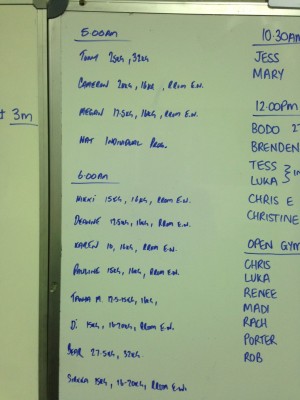 ± 3m
5:00am
Tony 25kg, 32kg
Cameron 20kg, 16kg, RROM E.N.
Megan 17.5kg, 16kg, RROM E.N.
Nat Individual Prog.
6:00am
Nikki 15kg, 16kg, RROM E.N.
Deanne 17.5kg, 16kg, RROM E.N.
Karen 10, 16kg, RROM E.N.
Pauline 15kg, 16kg, RROM E.N.
Tania M. 17.5-15kg, 16kg,
Di 15kg, 16-20kg, RROM E.N.
Bear 27.5kg, 32kg
15kg, 16-20kg, RROM E.N.
10.30am
JESS
MARY
12.00pm
BODO 27
BRENDEN
TESS
LUKA
CHRIS E
CHRISTINE
OPEN GYM
CHRIS
LUKA
RENEE
MADI
RACH
PORTER
ROB